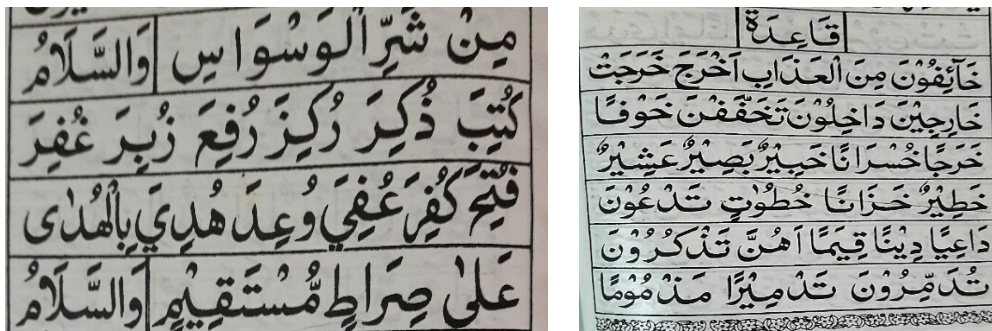 مِنْ شَرِّ الْوَسْوَاسِ وَالسَّلَامُ
كُتِبَ ذُكِرَ رُكِزَ رُفِعَ زُبِرَ غُفِرَ
فُتِحَ كُفِرَ عُفِيَ وُعِدَ هُدِيَ بِالْهُدٰى
عَلٰى صِرَاطٍ مُّسْتَقِيْمٍ وَالسَّلَامُ
قَاعِدَة
خَآئِفُوْنَ مِنَ الْعَذَابِ اَخْرَجَ خَرَجَتْ
خَارِجِيْنَ دَاخِلُوْنَ تَخَفَّفْنَ خَوْفًا
خَرَجًا خُسْرَانًا خَبِيْرٌ بَصِيْرٌ عَشِيْرٌ
خَطِيْرٌ خَزَانًا خُطُوٰتٍ تَدْعُوْنَ
دَاعِيًا دِيْنًا قِيَمًا اَهُنَّ تَذْكُرُوْنَ
تُدَمِّرُوْنَ تَدْمِيْرًا مَذْمُوْمًا